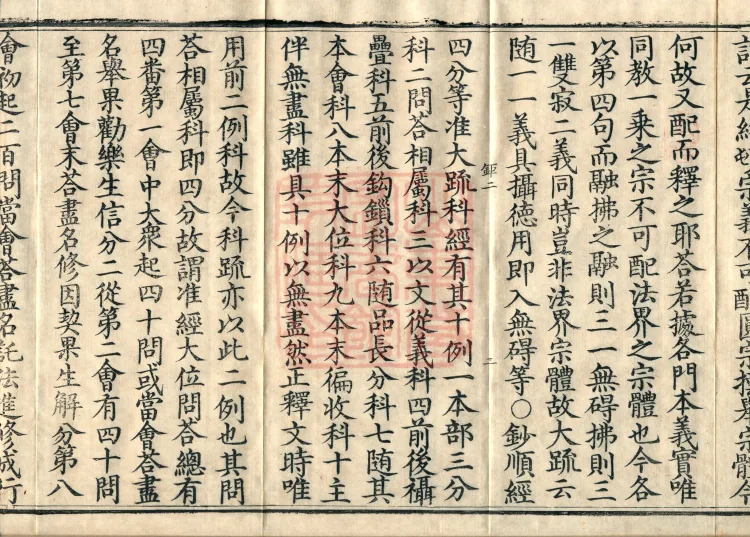 何故又配而釋之耶荅若據各門本義實唯
同教一乗之宗不可配法界之宗體也今各
以第四句而融拂之融則三一無碍拂則三
一雙寂二義同時豈非法界宗體故大䟽云
随一一義具攝德用即入無碍等〇鈔順經
四分等准大䟽科經有其十例一本部三分
科二問荅相屬科三以文從義科四前後攝
疊科五前後鈎鎖科六随品長分科七随其
本會科八本末大位科九本末徧收科十主
伴無盡科雖具十例以無盡然正釋文時唯
用前二例科故今科䟽亦以此二例也其問
荅相屬科即四分故謂准經大位問荅總有
四番第一會中大衆起四十問或當會荅盡
名舉果勸樂生信分二從第二會有四十問
至第七會末荅盡名修因契果生解分第八
會初起二百問當會荅盡名託法進修成行